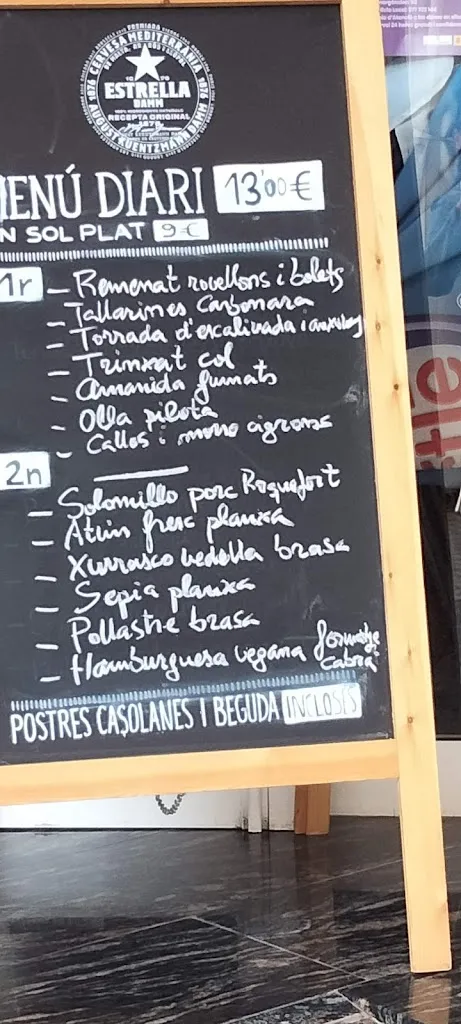 CERVESA MEDITERRÀNIA
1876 1876
ESTRELLA
DAMM
100% INGREDIENTS NATURALS
RECEPTA ORIGINAL
1876
AUGUST KUENTZMANN DAMM
MENÚ DIARI 13'00€
N SOL PLAT 9€
1r
- Remenat rovellons i bolets
- Tallarines Carbonara
- Torrada d'escalivada i anxoves
- Trinxat col
- Amanida fumats
- Olla pilota
- Callos i morro cigrons
2n
- Solomillo porc Roquefort
- Atún fresc planxa
- Xurrasco vedella brasa
- Sepia planxa
- Pollastre brasa
- Hamburguesa vegana formatge
Cabra
POSTRES CASOLANES I BEGUDA INCLOSES